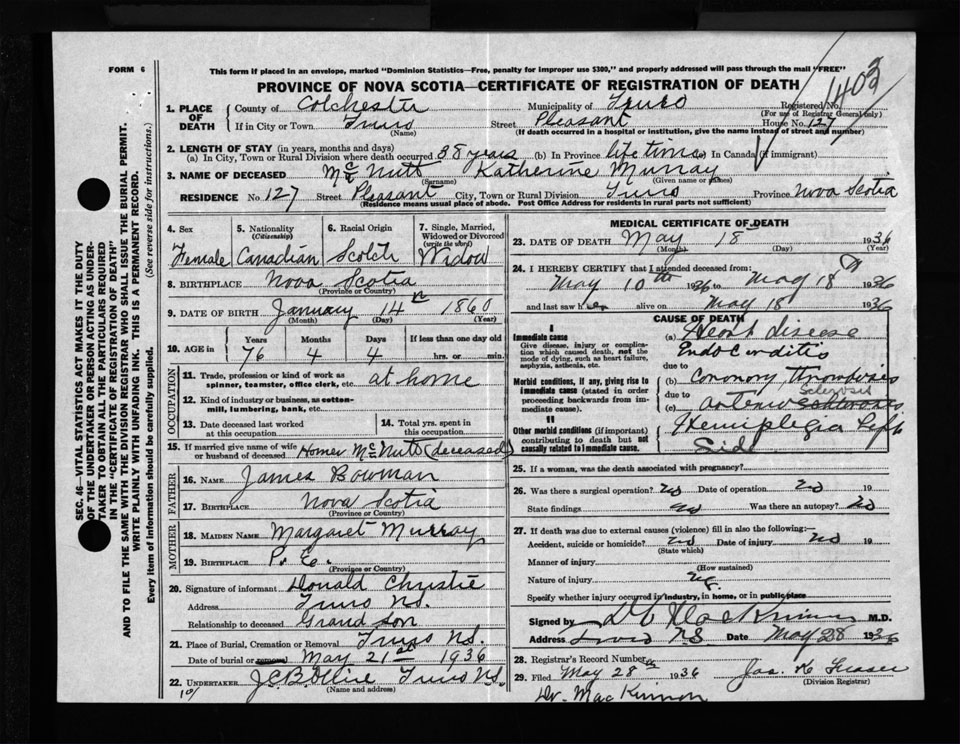 FORM 6
This form if placed in an envelope, marked "Dominion Statistics—Free, penalty for improper use $300," and properly addressed will pass through the mail "FREE"
PROVINCE OF NOVA SCOTIA—CERTIFICATE OF REGISTRATION OF DEATH
1403
1. PLACE OF DEATH
County of Colchester Municipality of Truro Registered No.
(For use of Registrar General only)
If in City or Town Truro Street Pleasant House No. 127
(Name) (If death occurred in a hospital or institution, give the name instead of street and number)
2. LENGTH OF STAY (in years, months and days)
(a) In City, Town or Rural Division where death occurred 38 years (b) In Province life time (c) In Canada (if immigrant)
3. NAME OF DECEASED McNutt Katherine Murray
(Surname) (Given name or names)
RESIDENCE No. 127 Street Pleasant City, Town or Rural Division Truro Province Nova Scotia
(Residence means usual place of abode. Post Office Address for residents in rural parts not sufficient)
4. Sex
Female
5. Nationality
(Citizenship)
Canadian
6. Racial Origin
Scotch
7. Single, Married, Widowed or Divorced
(write the word)
Widow
8. BIRTHPLACE Nova Scotia
(Province or Country)
9. DATE OF BIRTH January 14th 1860
(Month) (Day) (Year)
10. AGE in
Years Months Days If less than one day old
76 4 4 hrs. or min.
OCCUPATION
11. Trade, profession or kind of work as spinner, teamster, office clerk, etc. at home
12. Kind of industry or business, as cotton-mill, lumbering, bank, etc.
13. Date deceased last worked at this occupation
14. Total yrs. spent in this occupation
15. If married give name of wife or husband of deceased Homer McNutt (deceased)
FATHER
16. NAME James Bowman
17. BIRTHPLACE Nova Scotia
(Province or Country)
MOTHER
18. MAIDEN NAME Margaret Murray
19. BIRTHPLACE P. E.
(Province or Country)
20. Signature of informant Donald Christie
Address Truro NS.
Relationship to deceased Grand son
21. Place of Burial, Cremation or Removal Truro NS.
Date of burial or removal May 21st 1936
22. UNDERTAKER J.C.B. Truro NS.
(Name and address)
MEDICAL CERTIFICATE OF DEATH
23. DATE OF DEATH May 18 1936
(Month) (Day) (Year)
24. I HEREBY CERTIFY that I attended deceased from:
May 10th 1936 to May 18th 1936
and last saw her alive on May 18 1936
CAUSE OF DEATH
I
Immediate cause
Give disease, injury or complication which caused death, not the mode of dying, such as heart failure, asphyxia, asthenia, etc.
(a) Heart disease
Endocarditis
due to
Morbid conditions, if any, giving rise to immediate cause (stated in order proceeding backwards from immediate cause).
(b) Coronary thrombosis
due to
(c) arterio sclerosis
II
Other morbid conditions (if important) contributing to death but not causally related to immediate cause.
Hemiplegia Left Side
25. If a woman, was the death associated with pregnancy?
26. Was there a surgical operation? no Date of operation no 19
State findings no Was there an autopsy? no
27. If death was due to external causes (violence) fill in also the following:—
Accident, suicide or homicide? no Date of injury no 19
(State which)
Manner of injury
(How sustained)
Nature of injury
Specify whether injury occurred in industry, in home, or in public place
Signed by MacKinnon M.D.
Address Truro N.S. Date May 28 1936
28. Registrar's Record Number
29. Filed May 28 1936
(Division Registrar)
Dr. MacKinnon
SEC. 46—VITAL STATISTICS ACT MAKES IT THE DUTY
OF THE UNDERTAKER OR PERSON ACTING AS UNDER-
TAKER TO OBTAIN ALL THE PARTICULARS REQUIRED
IN THE "CERTIFICATE OF REGISTRATION OF DEATH"
AND TO FILE THE SAME WITH THE DIVISION REGISTRAR WHO SHALL ISSUE THE BURIAL PERMIT.
WRITE PLAINLY WITH UNFADING INK. THIS IS A PERMANENT RECORD.
Every item of information should be carefully supplied. (See reverse side for instructions.)